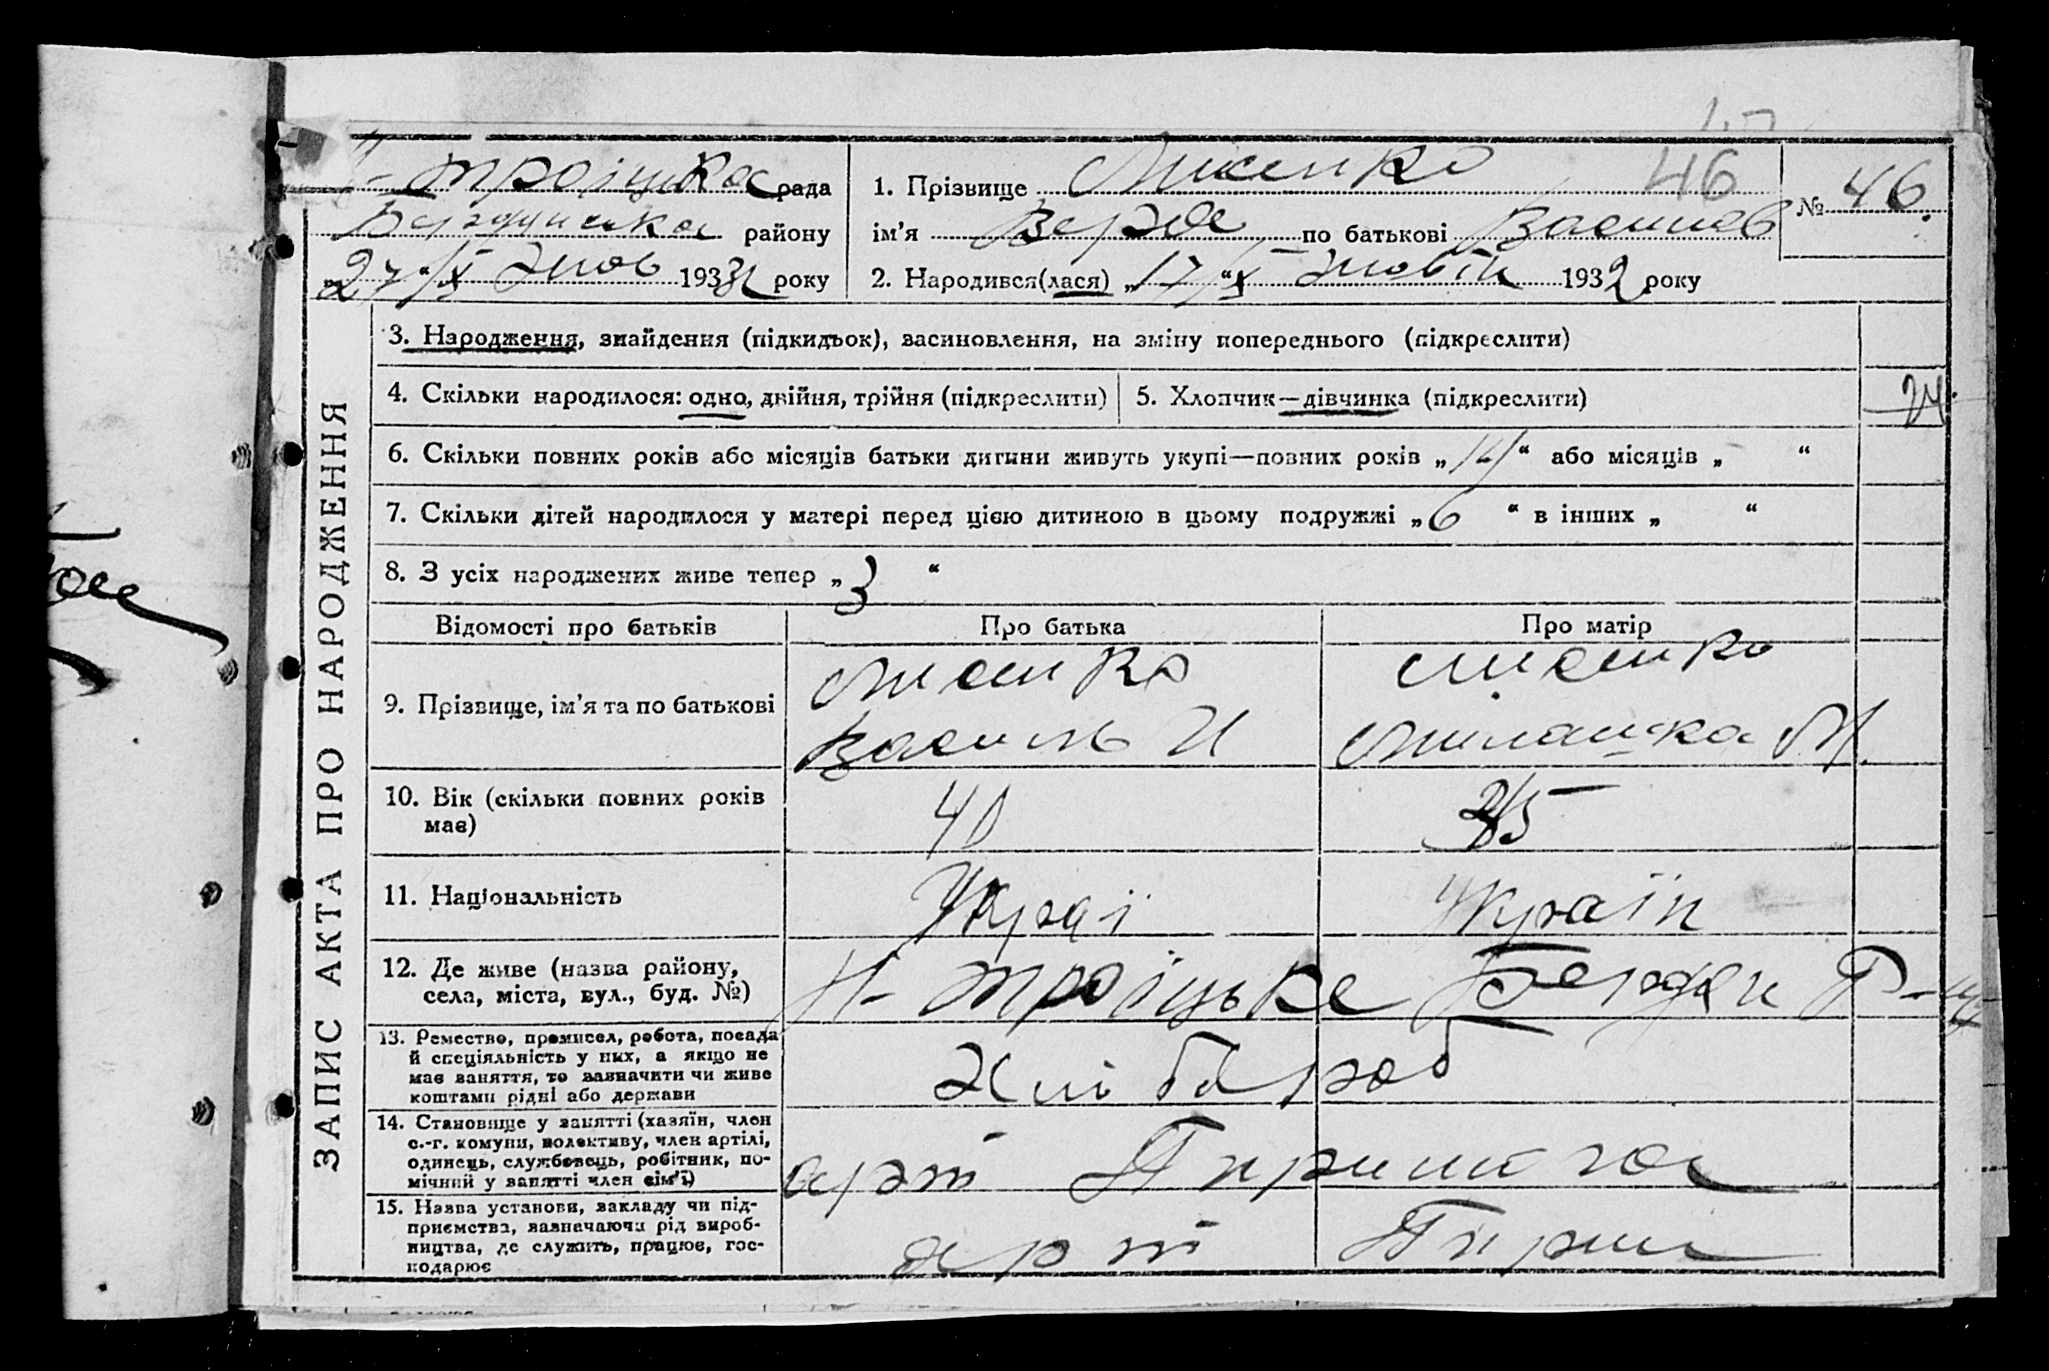 Н-Троіцька рада
Бердянська району
„27“/X жов 1932 року
1. Прізвище Лисенко 46
№ 46.
ім'я Вера по батькові Василів
2. Народився(лася) „17“/X жовтн 1932 року
ЗАПИС АКТА ПРО НАРОДЖЕННЯ
3. Народження, знайдення (підкидьок), засиновлення, на зміну попереднього (підкреслити)
4. Скільки народилося: одно, двійня, трійня (підкреслити)
5. Хлопчик—дівчинка (підкреслити)
6. Скільки повних років або місяців батьки дитини живуть укупі—повних років „14“ або місяців „-“
7. Скільки дітей народилося у матері перед цією дитиною в цьому подружжі „6“ в інших „ “
8. З усіх народжених живе тепер „3“
Відомості про батьків
Про батька
Про матір
9. Прізвище, ім'я та по батькові
Лисенко
Василь И
Лисенко
Милашка М.
10. Вік (скільки повних років
має)
40
35
11. Національність
Украї
Україн
12. Де живе (назва району,
села, міста, вул., буд. №)
Н-Троіцьке Бердян Р-ну
13. Ремество, промисел, робота, посада
й спеціяльність у них, а якщо не
має заняття, то зазначити чи живе
коштами рідні або держави
Хлібороб
14. Становище у занятті (хазяїн, член
с.-г. комуни, колективу, член артілі,
одинець, службовець, робітник, по-
мічний у занятті член сім'ї)
арт
15. Назва установи, закладу чи під-
приємства, зазначаючи рід вироб-
ництва, де служить, працює, гос-
подарює
арт